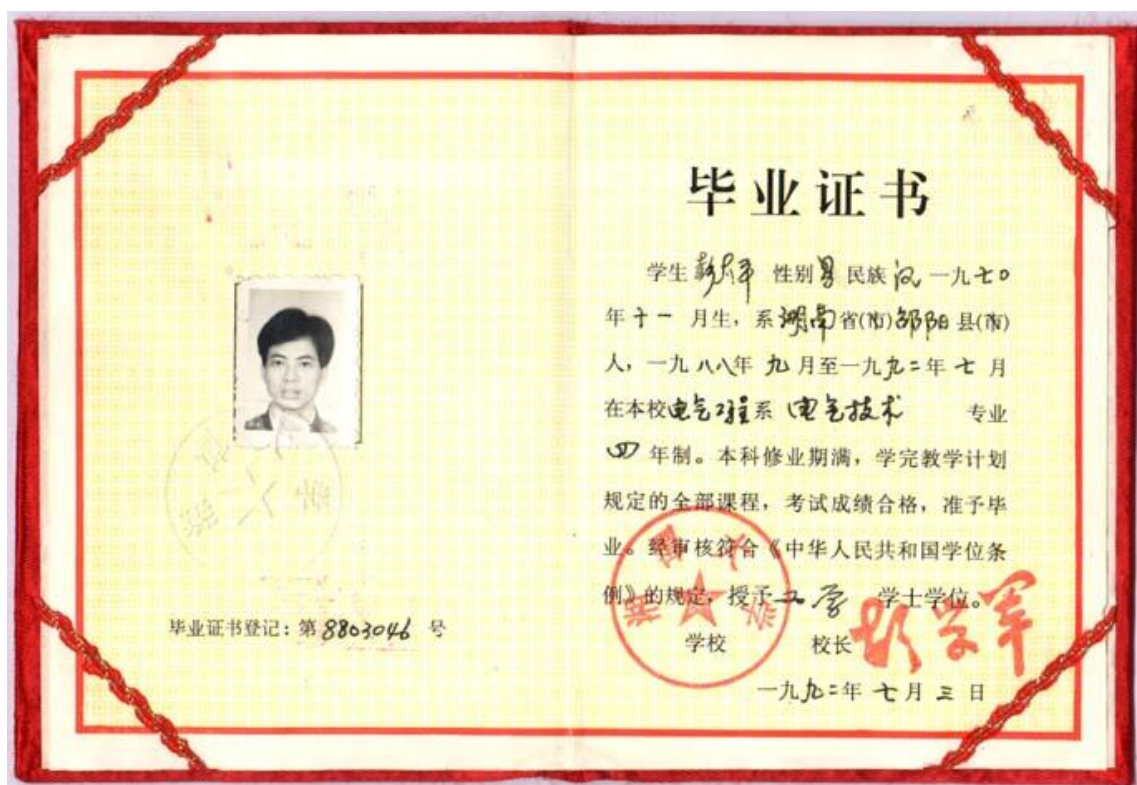 毕业证书
学生 性别男 民族汉 一九七〇
年十一月生，系湖南省(市)邵阳县(市)
人，一九八八年九月至一九九二年七月
在本校电气工程系 电气技术 专业
四年制。本科修业期满，学完教学计划
规定的全部课程，考试成绩合格，准予毕
业。经审核符合《中华人民共和国学位条
例》的规定，授予工学 学士学位。
学校 校长
一九九二年七月三日
毕业证书登记：第8803046号